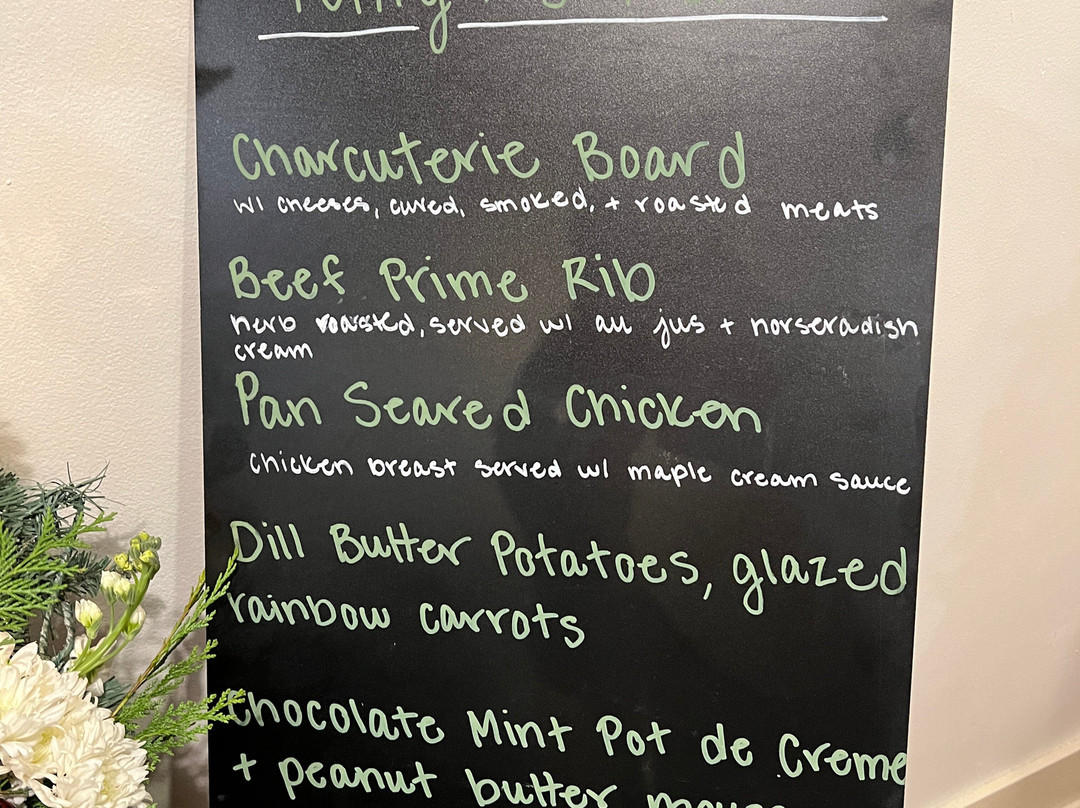 Charcuterie Board
w/ cheeses, cured, smoked, + roasted meats
Beef Prime Rib
herb roasted, served w/ au jus + horseradish
cream
Pan Seared Chicken
chicken breast served w/ maple cream sauce
Dill Butter Potatoes, glazed
rainbow carrots
Chocolate Mint Pot de Creme
+ peanut butter